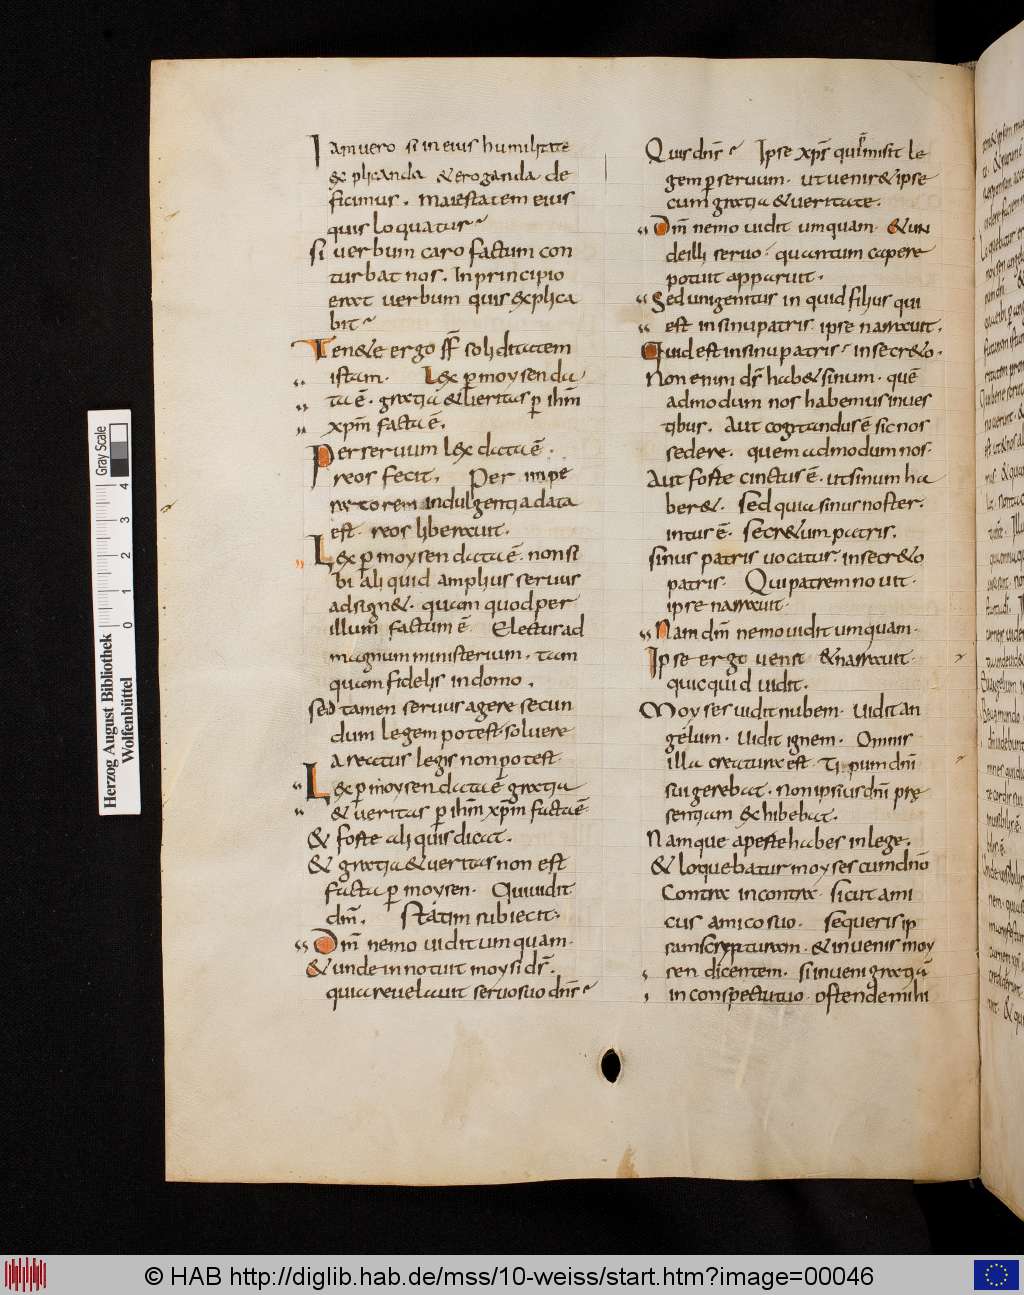 Iam uero si in eius humilitate
explicanda & eroganda de
ficimus. maiestatem eius
quis loquatur
si uerbum caro factum con
turbat nos. In principio
erat uerbum quis explica
bit
Ten&e ergo soliditatem
istam. Lex p moysen da
ta ē. gratia & ueritas p ihm
xpm facta ē.
Per seruum lex data ē.
reos fecit. Per impe
ratorem indulgentia data
est. reos liberauit.
Lex p moysen data ē. non si
bi aliquid amplius seruus
adsign&. quam quod per
illum factum ē Electus ad
magnum ministerium. tam
quam fidelis in domo.
sed tamen seruus agere secun
dum legem potest. soluere
a reatus legis non potest
Lex p moysen data ē gratia
& ueritas p ihm xpm facta ē
& forte aliquis dicat.
& gratia & ueritas non est
facta p moysen. Qui uidit
dm̄. Statim subiecit.
Dm̄ nemo uidit umquam.
& unde innotuit moysi ds̄.
quia reuelauit seruo suo dns̄
Quis dns̄ Ipse xps̄ qui misit le
gem p seruum. ut uenir& ipse
cum gratia & ueritate.
Dm̄ nemo uidit umquam. & un
de illi seruo. quantum capere
potuit apparuit.
Sed unigenitus in quid filius qui
est in sinu patris. ipse narrauit.
Quid est in sinu patris in secr&o.
Non enim ds̄ hab& sinum. quē
admodum nos habemus in ues
tibus. Aut cogitandus ē sic nos
sedere. quemadmodum nos.
Aut forte cinctus ē. ut sinum ha
ber&. Sed quia sinus noster.
intus ē. secr&um patris.
sinus patris uocatur. in secr&o
patris. Qui patrem nouit.
ipse narrauit.
Nam dm̄ nemo uidit umquam.
Ipse ergo uenit & narrauit.
quicquid uidit.
Moyses uidit nubem. Uidit an
gelum. Uidit ignem. Omnis
illa creatura est. Tipum dn̄i
sui gerebat. non ipsius dn̄i pre
sentiam exhibebat.
Namque aperte habes in lege.
& loquebatur moyses cum dn̄o
Contra in contra. sicut ami
cus amico suo. sequeris ip
sam scripturam. & inuenis moy
sen dicentem. si inueni gratiā
in conspectu tuo. ostende mihi
Gray Scale
0 1 2 3 4
Herzog August Bibliothek
Wolfenbüttel
© HAB http://diglib.hab.de/mss/10-weiss/start.htm?image=00046